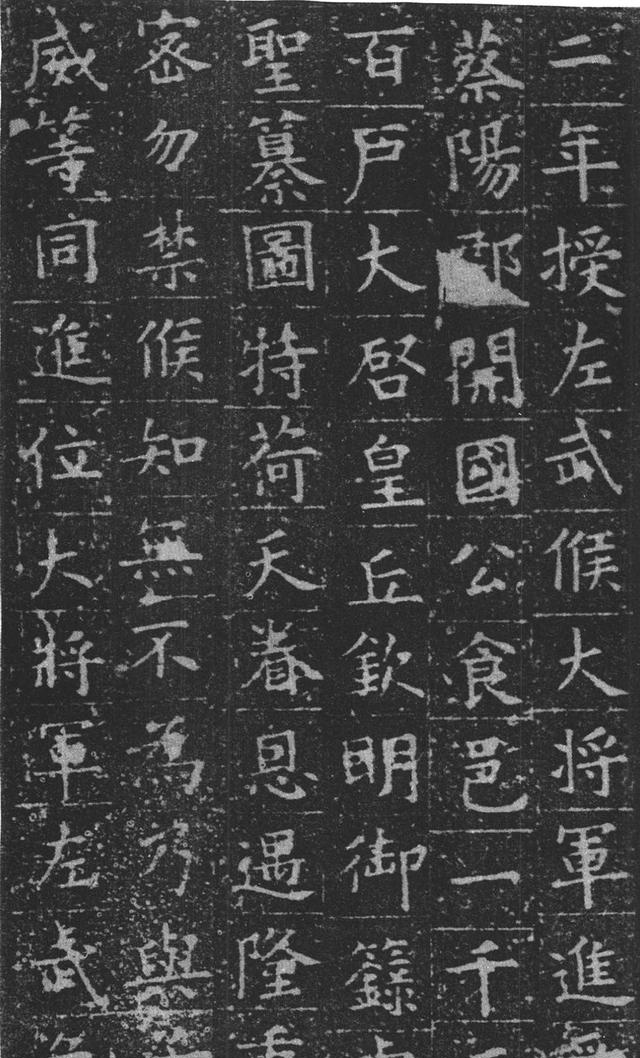 二年授左武候大將軍進
蔡陽郡開國公食邑一千
百戶大啓皇丘欽明御籙
聖纂圖特荷天眷恩遇隆
密勿禁候知無不為乃與
威等同進位大將軍左武